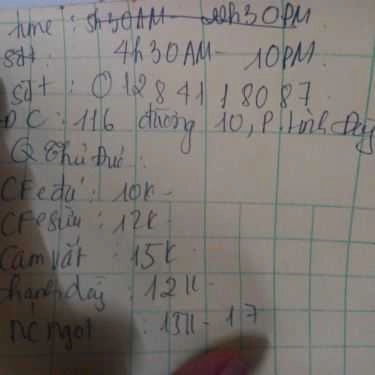 time : 5h30AM - 22h30PM
sđt : 4h30AM - 10PM.
sđt : 01284118087
ĐC : 116 đường 10, P. Bình
Q Thủ Đức :
CFe đá : 10K -
CFe sữa : 12K -
Cam vắt : 15K
chanh dây : 12K.
nc ngọt : 13K - 17